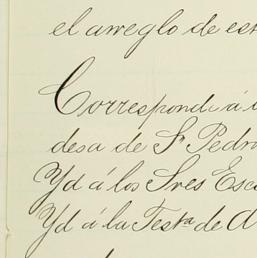 el arreglo de est
Corresponde á
desa de Sr Pedro
Yd á los Sres Esc
Yd á la Testa de A